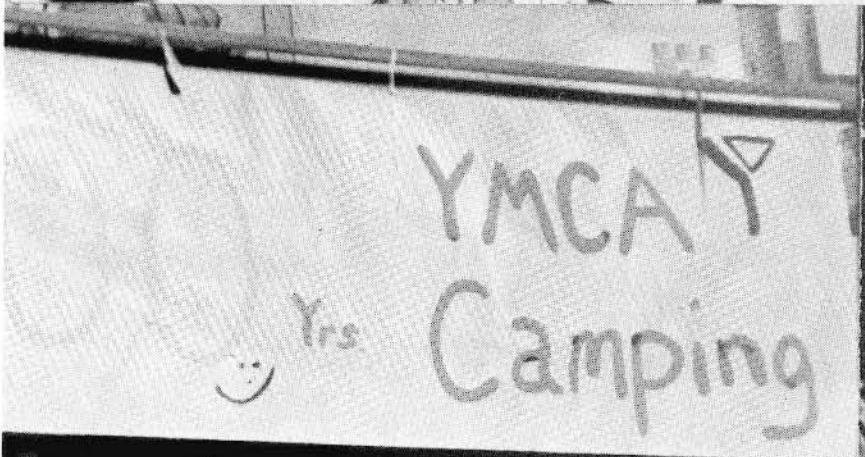 YMCA
Yrs. Camping